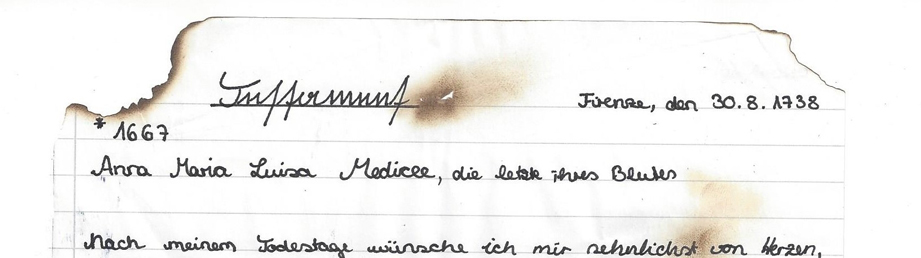 Testament
Firenze, den 30.8.1738
* 1667
Anna Maria Luisa Medicee, die letzte ihres Blutes
Nach meinem Todestage wünsche ich mir sehnlichst von Herzen,